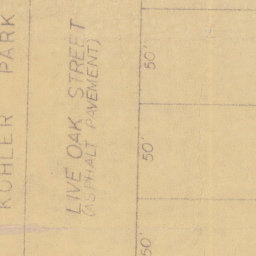 KOHLER PARK
LIVE OAK STREET
(ASPHALT PAVEMENT)
50'
50'
50'